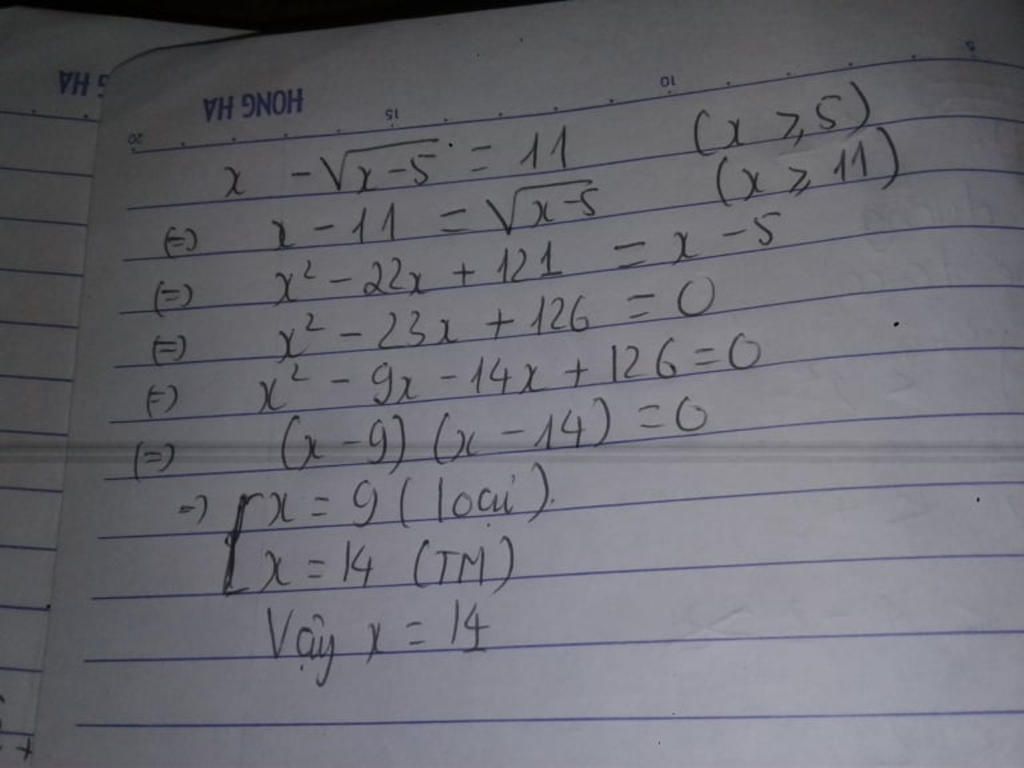 HONG HA
20 15 10 5
x - √x-5 = 11 (x ≥ 5)
(=) x - 11 = √x-5 (x ≥ 11)
(=) x² - 22x + 121 = x - 5
(=) x² - 23x + 126 = 0
(=) x² - 9x - 14x + 126 = 0
(=) (x - 9) (x - 14) = 0
=) [ x = 9 (loại).
x = 14 (TM)
Vậy x = 14